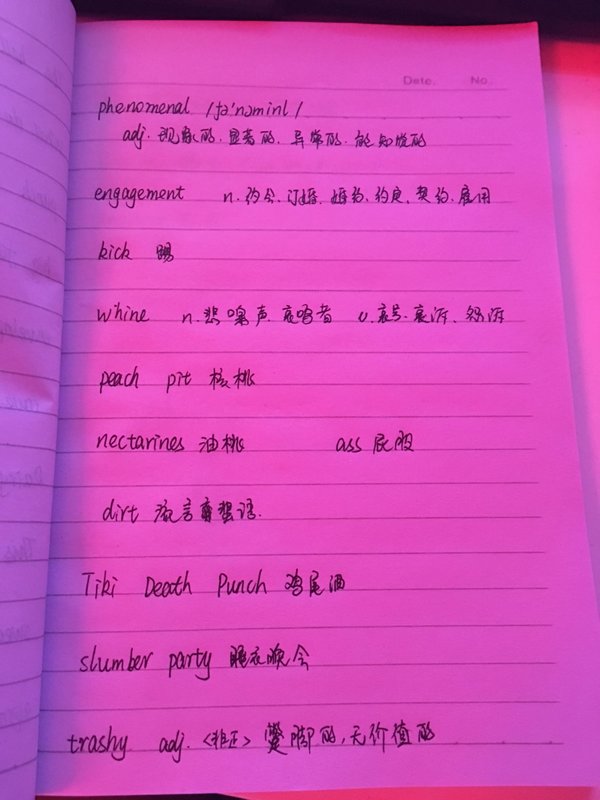 Date. No.
phenomenal /fə'nɑminl/
adj. 现象的. 显著的. 异常的. 能知觉的
engagement n. 约会. 订婚. 婚约. 约定. 契约. 雇用
kick 踢
whine n. 悲嗥声. 哀鸣者 v. 哀号. 哀诉. 
peach pit 核桃
nectarines 油桃 ass 屁股
dirt 流言蜚语.
Tiki Death Punch 鸡尾酒
slumber party 睡衣晚会
trashy adj. <非正> 蹩脚的, 无价值的